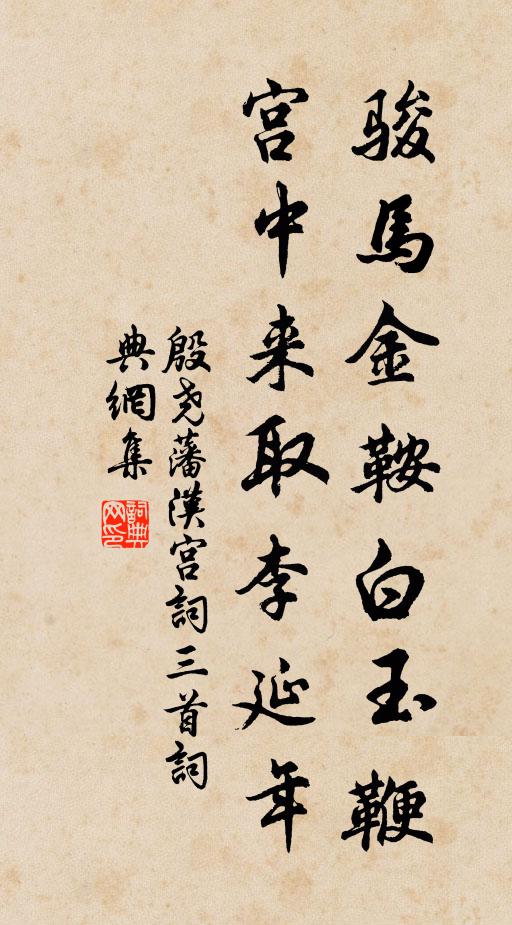 骏馬金鞍白玉鞭
宫中来取李延年
殷尧藩漢宫詞三首詞
典網集
詞典网印